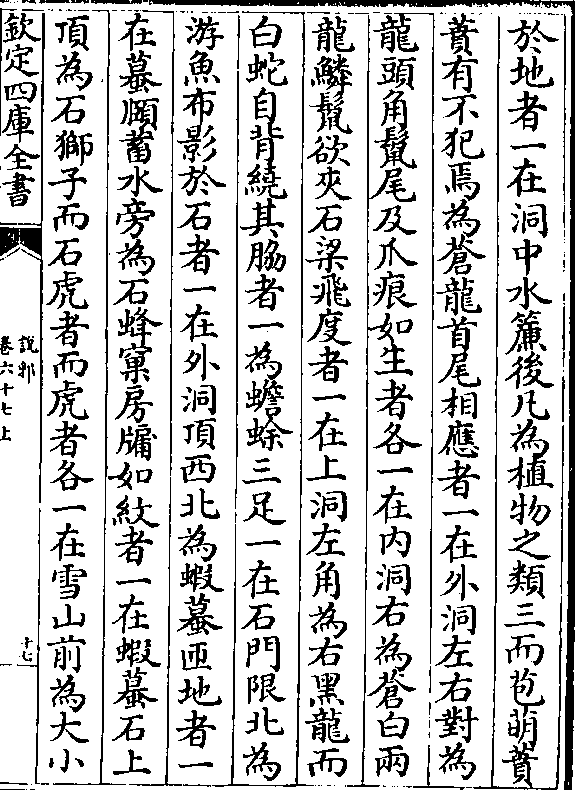 於地者一在洞中水簾後凡為植物之類三而苞萌蕡
蕡有不犯焉為蒼龍首尾相應者一在外洞左右對為
龍頭角鬣尾及爪痕如生者各一在内洞右為蒼白兩
龍鱗鬣欲夾石梁飛度者一在上洞左角為右黑龍而
白蛇自背繞其脇者一為蟾蜍三足一在石門限北為
游魚布影於石者一在外洞頂西北為蝦蟇匝地者一
在蟇頤蓄水旁為石蜂窠房牖如紋者一在蝦蟇石上
頂為石獅子而石虎者而虎者各一在雪山前為大小
欽定四庫全書
說郛
卷六十七上
十七